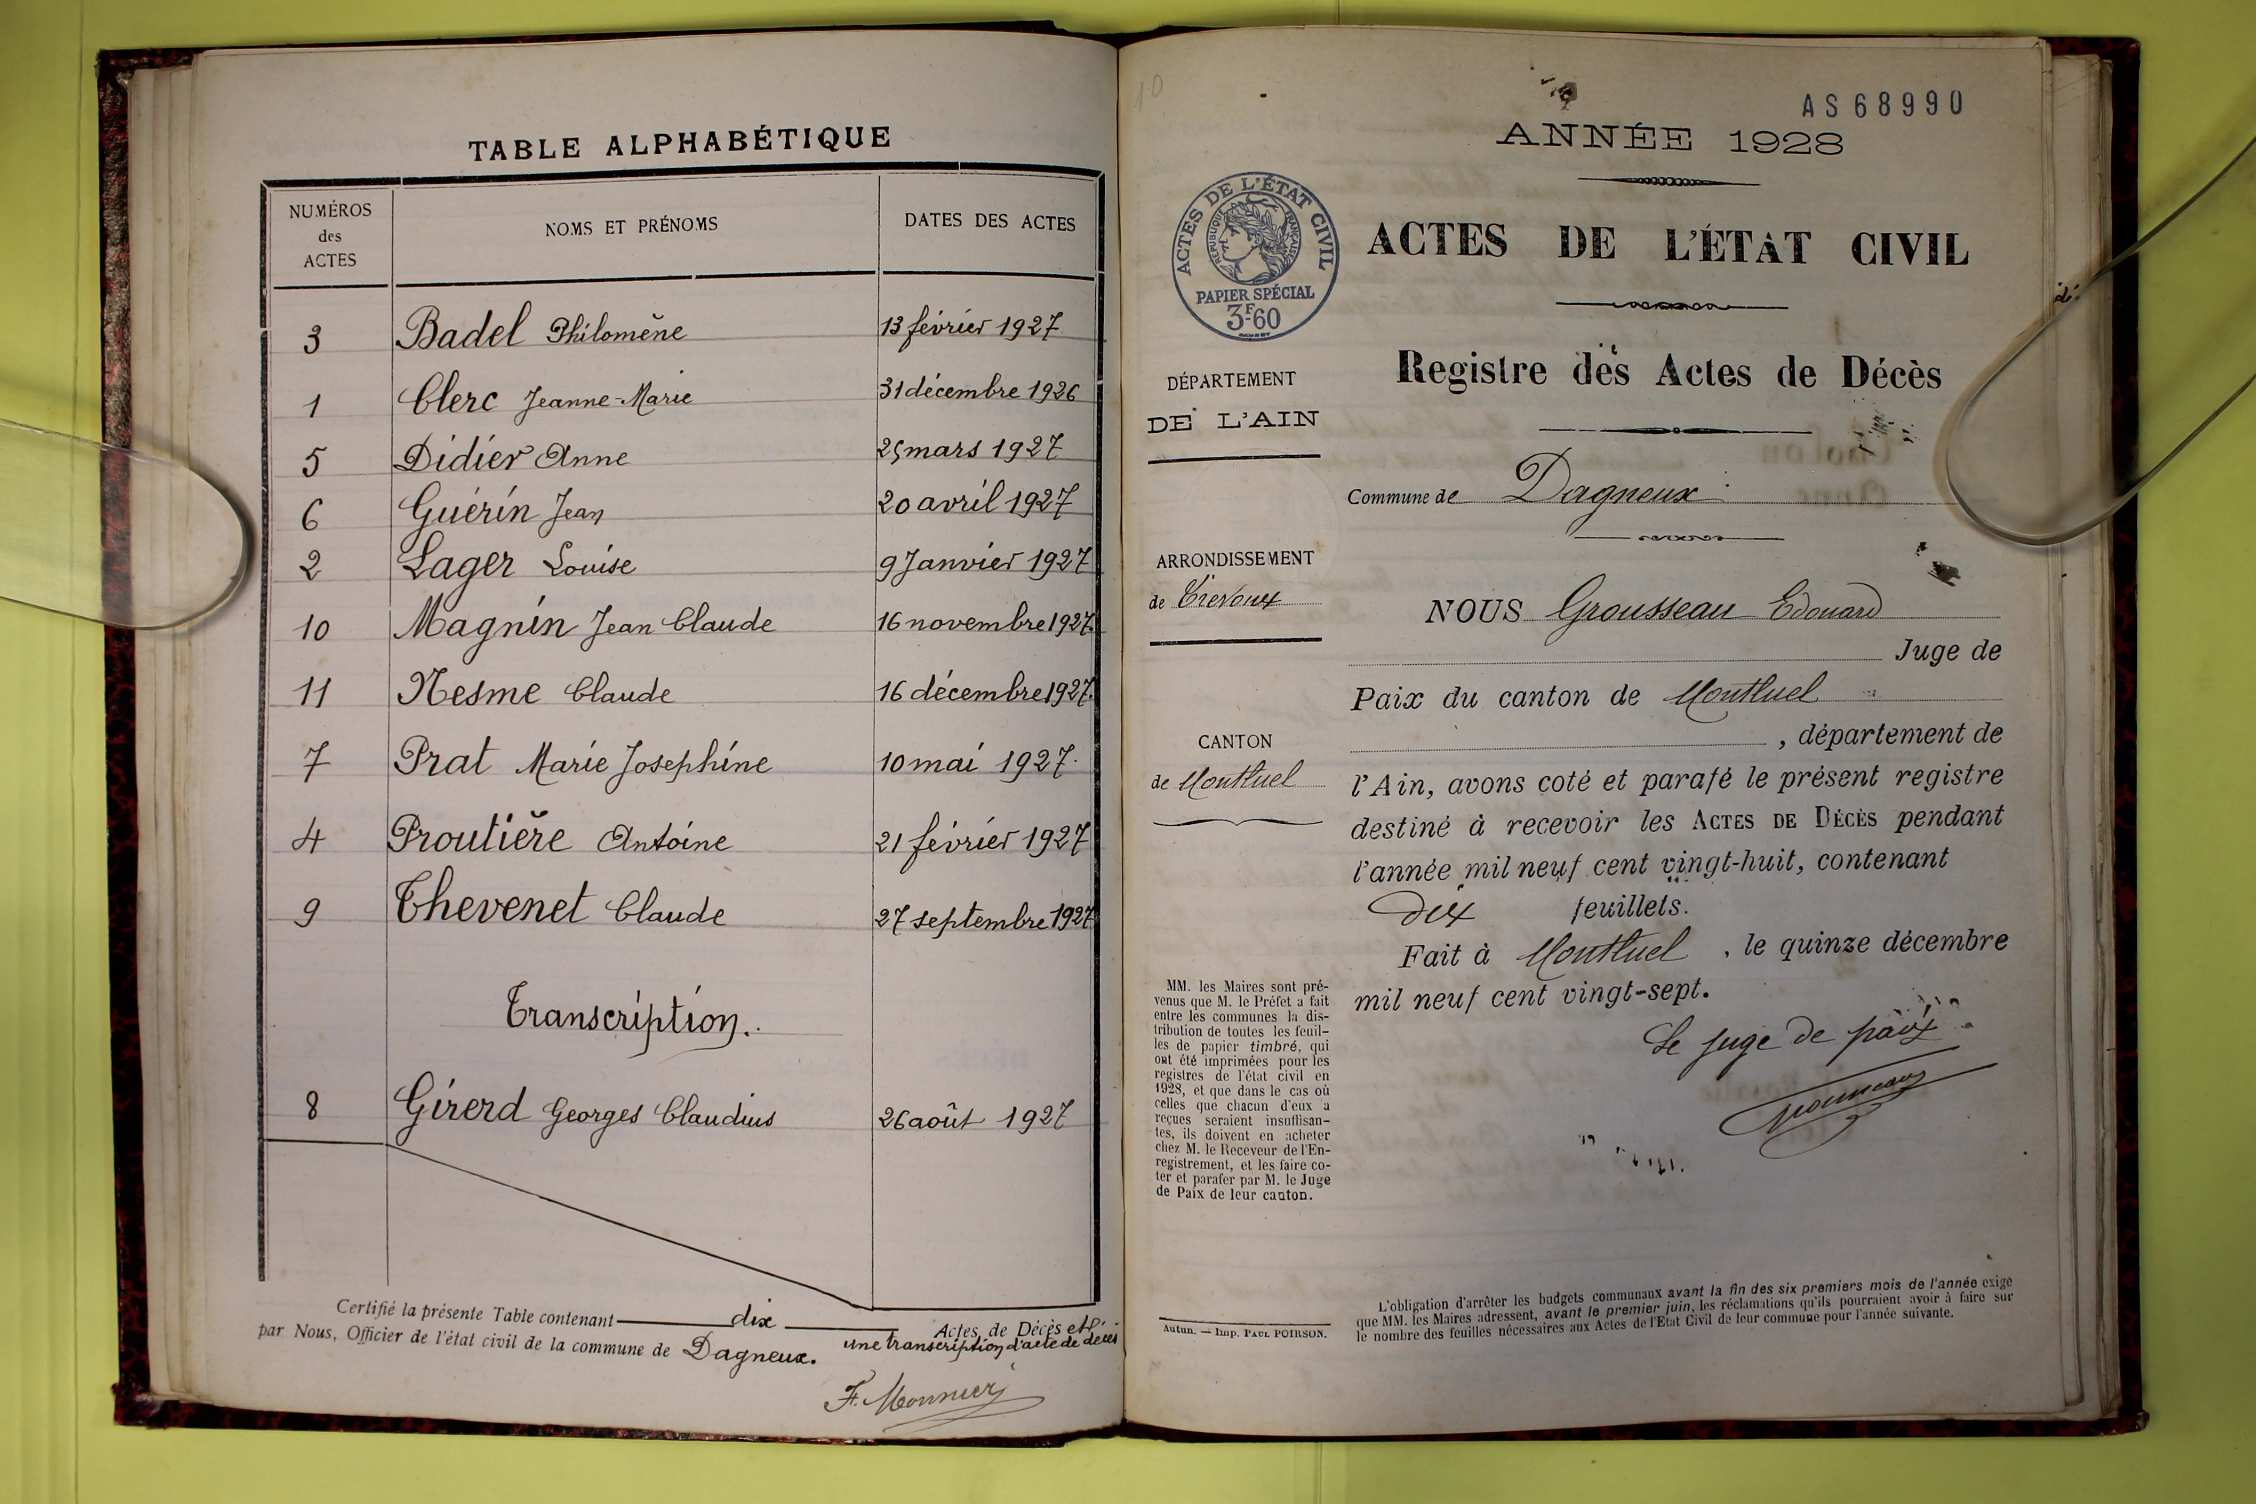 TABLE ALPHABÉTIQUE
NUMÉROS des ACTES NOMS ET PRÉNOMS DATES DES ACTES
3 Badel Philomène 13 février 1927
1 Clerc Jeanne-Marie 31 décembre 1926
5 Didier Anne 25 mars 1927
6 Guérin Jean 20 avril 1927
2 Lager Louise 9 Janvier 1927
10 Magnin Jean Claude 16 novembre 1927
11 Nesme Claude 16 décembre 1927
7 Prat Marie Josephine 10 mai 1927
4 Proutière Antoine 21 février 1927
9 Thevenet Claude 27 septembre 1927
Transcription.
8 Girerd Georges Claudius 26 août 1927
Certifié la présente Table contenant dix Actes de Décès et
une transcription d'acte de décès
par Nous, Officier de l'état civil de la commune de Dagneux.
F. Monnier
10
AS68990
ANNÉE 1928
ACTES DE L'ÉTAT CIVIL
RÉPUBLIQUE FRANÇAISE
PAPIER SPÉCIAL
3F60
ACTES DE L'ÉTAT CIVIL
Registre des Actes de Décès
DÉPARTEMENT
DE L'AIN
Commune de Dagneux
ARRONDISSEMENT
de Trévoux
CANTON
de Montluel
NOUS Grousseau Edouard
Juge de
Paix du canton de Montluel
, département de
l'Ain, avons coté et parafé le présent registre
destiné à recevoir les ACTES DE DÉCÈS pendant
l'année mil neuf cent vingt-huit, contenant
dix feuillets.
Fait à Montluel, le quinze décembre
mil neuf cent vingt-sept.
Le juge de paix
MM. les Maires sont pré-
venus que M. le Préfet a fait
entre les communes la dis-
tribution de toutes les feuil-
les de papier timbré, qui
ont été imprimées pour les
registres de l'état civil en
1928, et que dans le cas où
celles que chacun d'eux a
reçues seraient insuffisan-
tes, ils doivent en acheter
chez M. le Receveur de l'En-
registrement, et les faire co-
ter et parafer par M. le Juge
de Paix de leur canton.
Autun. — Imp. PAUL POIRSON.
L'obligation d'arrêter les budgets communaux avant la fin des six premiers mois de l'année exige
que MM. les Maires adressent, avant le premier juin, les réclamations qu'ils pourraient avoir à faire sur
le nombre des feuilles nécessaires aux Actes de l'Etat Civil de leur commune pour l'année suivante.